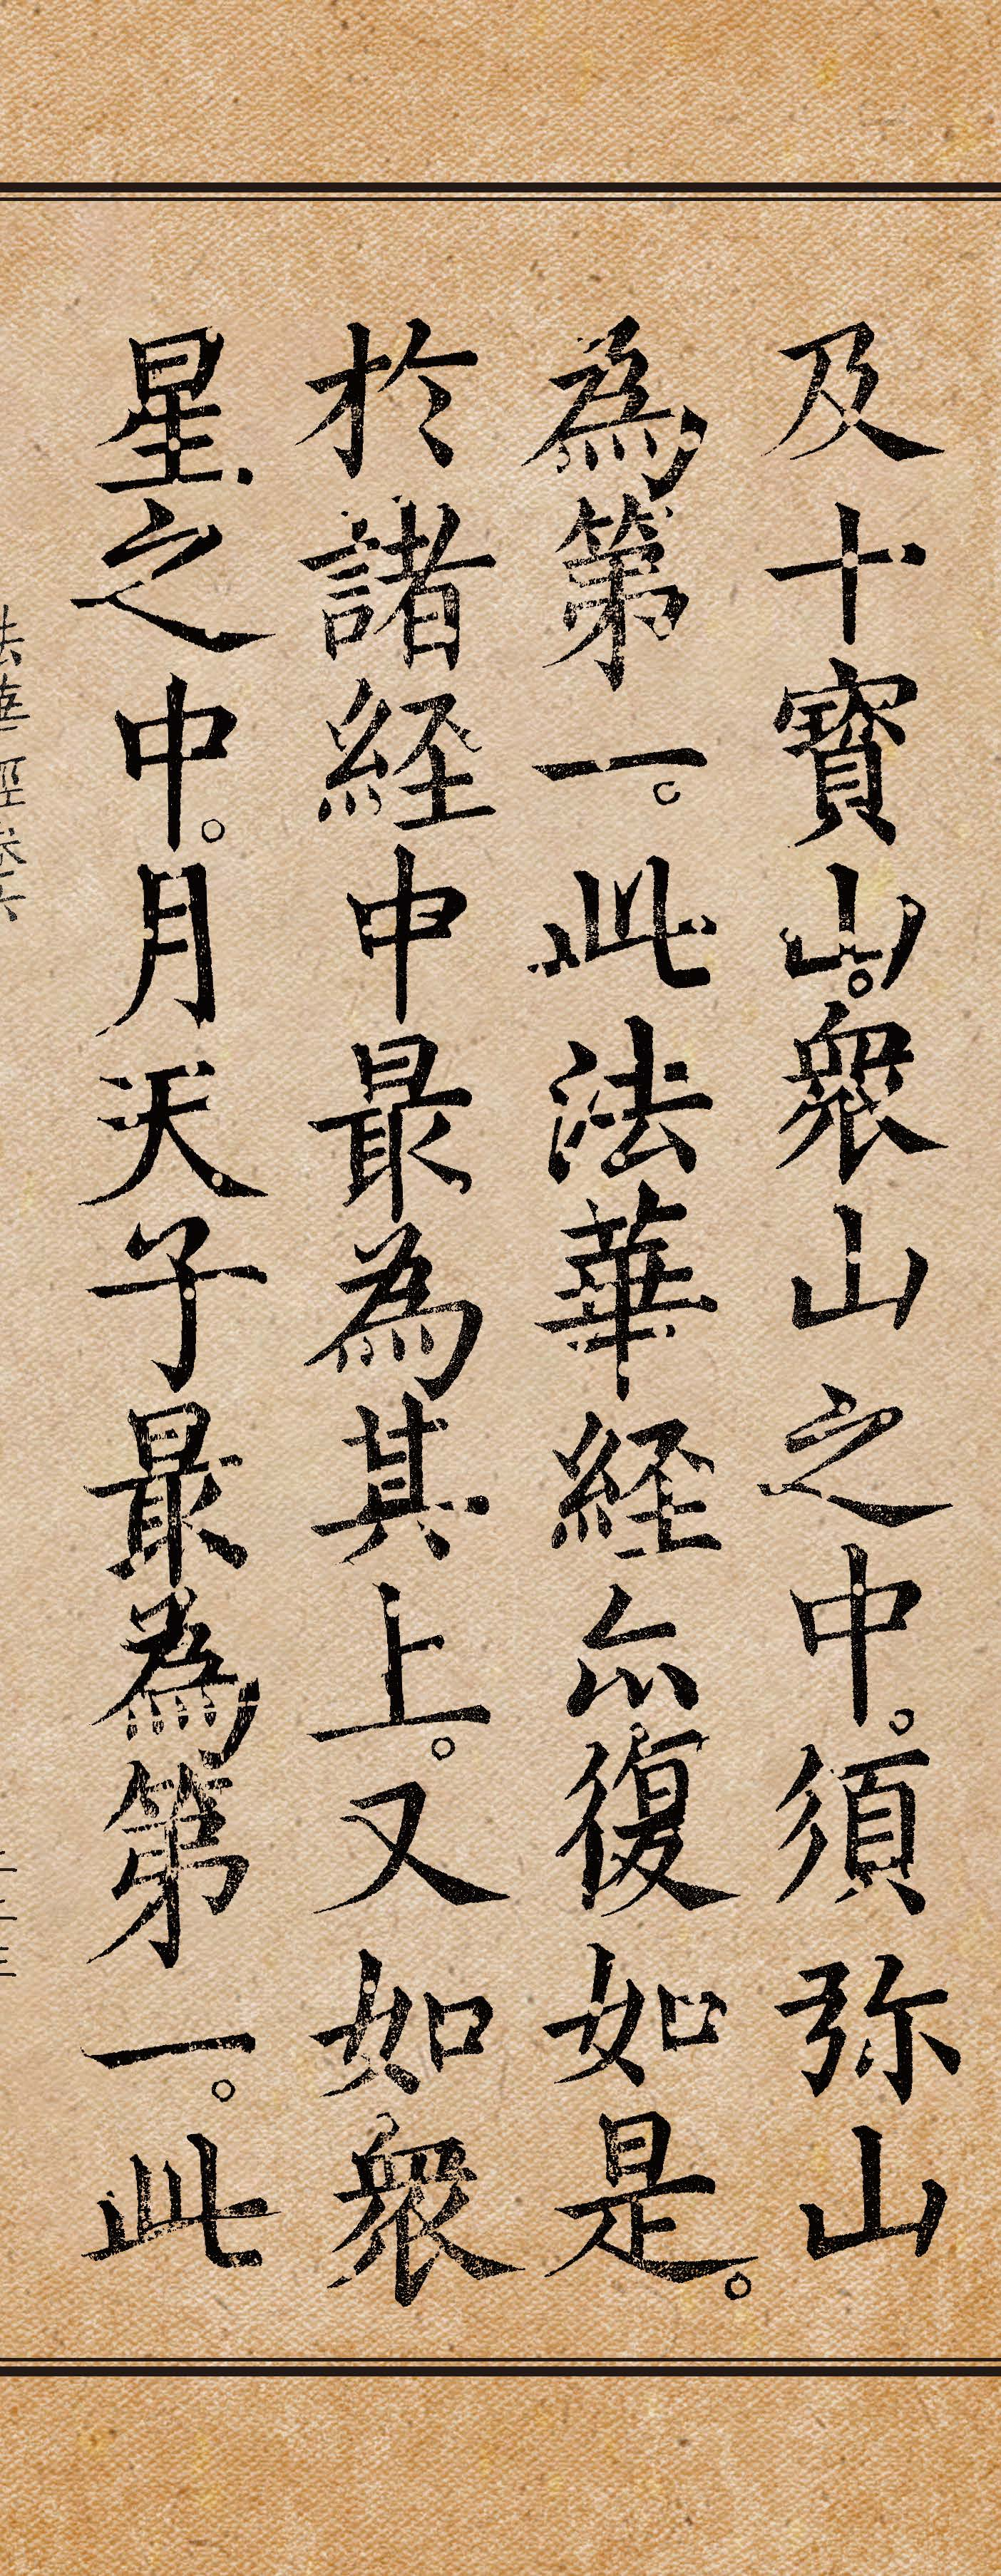 及十寶山。衆山之中。須弥山
為第一。此法華経亦復如是。
於諸経中最為其上。又如衆
星之中。月天子最為第一。此
法華經卷六